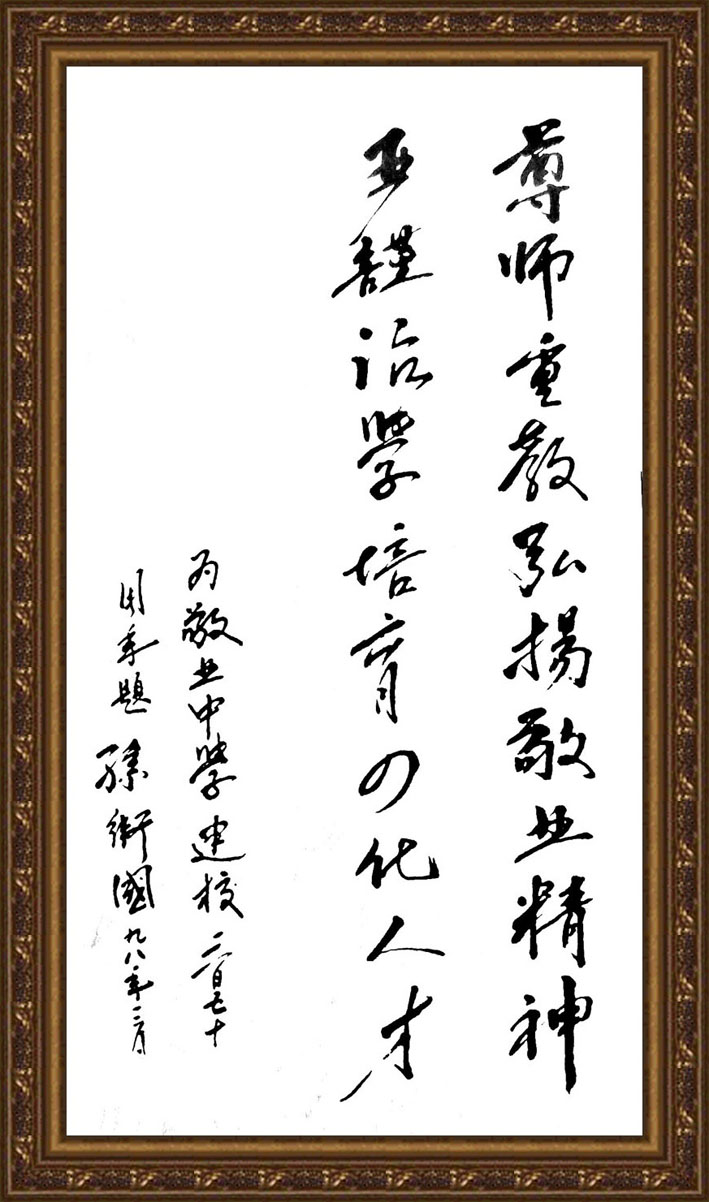 尊师重教弘扬敬业精神
严谨治学培育四化人才
为敬业中学建校二百五十
周年题 孙卫国 九八年三月